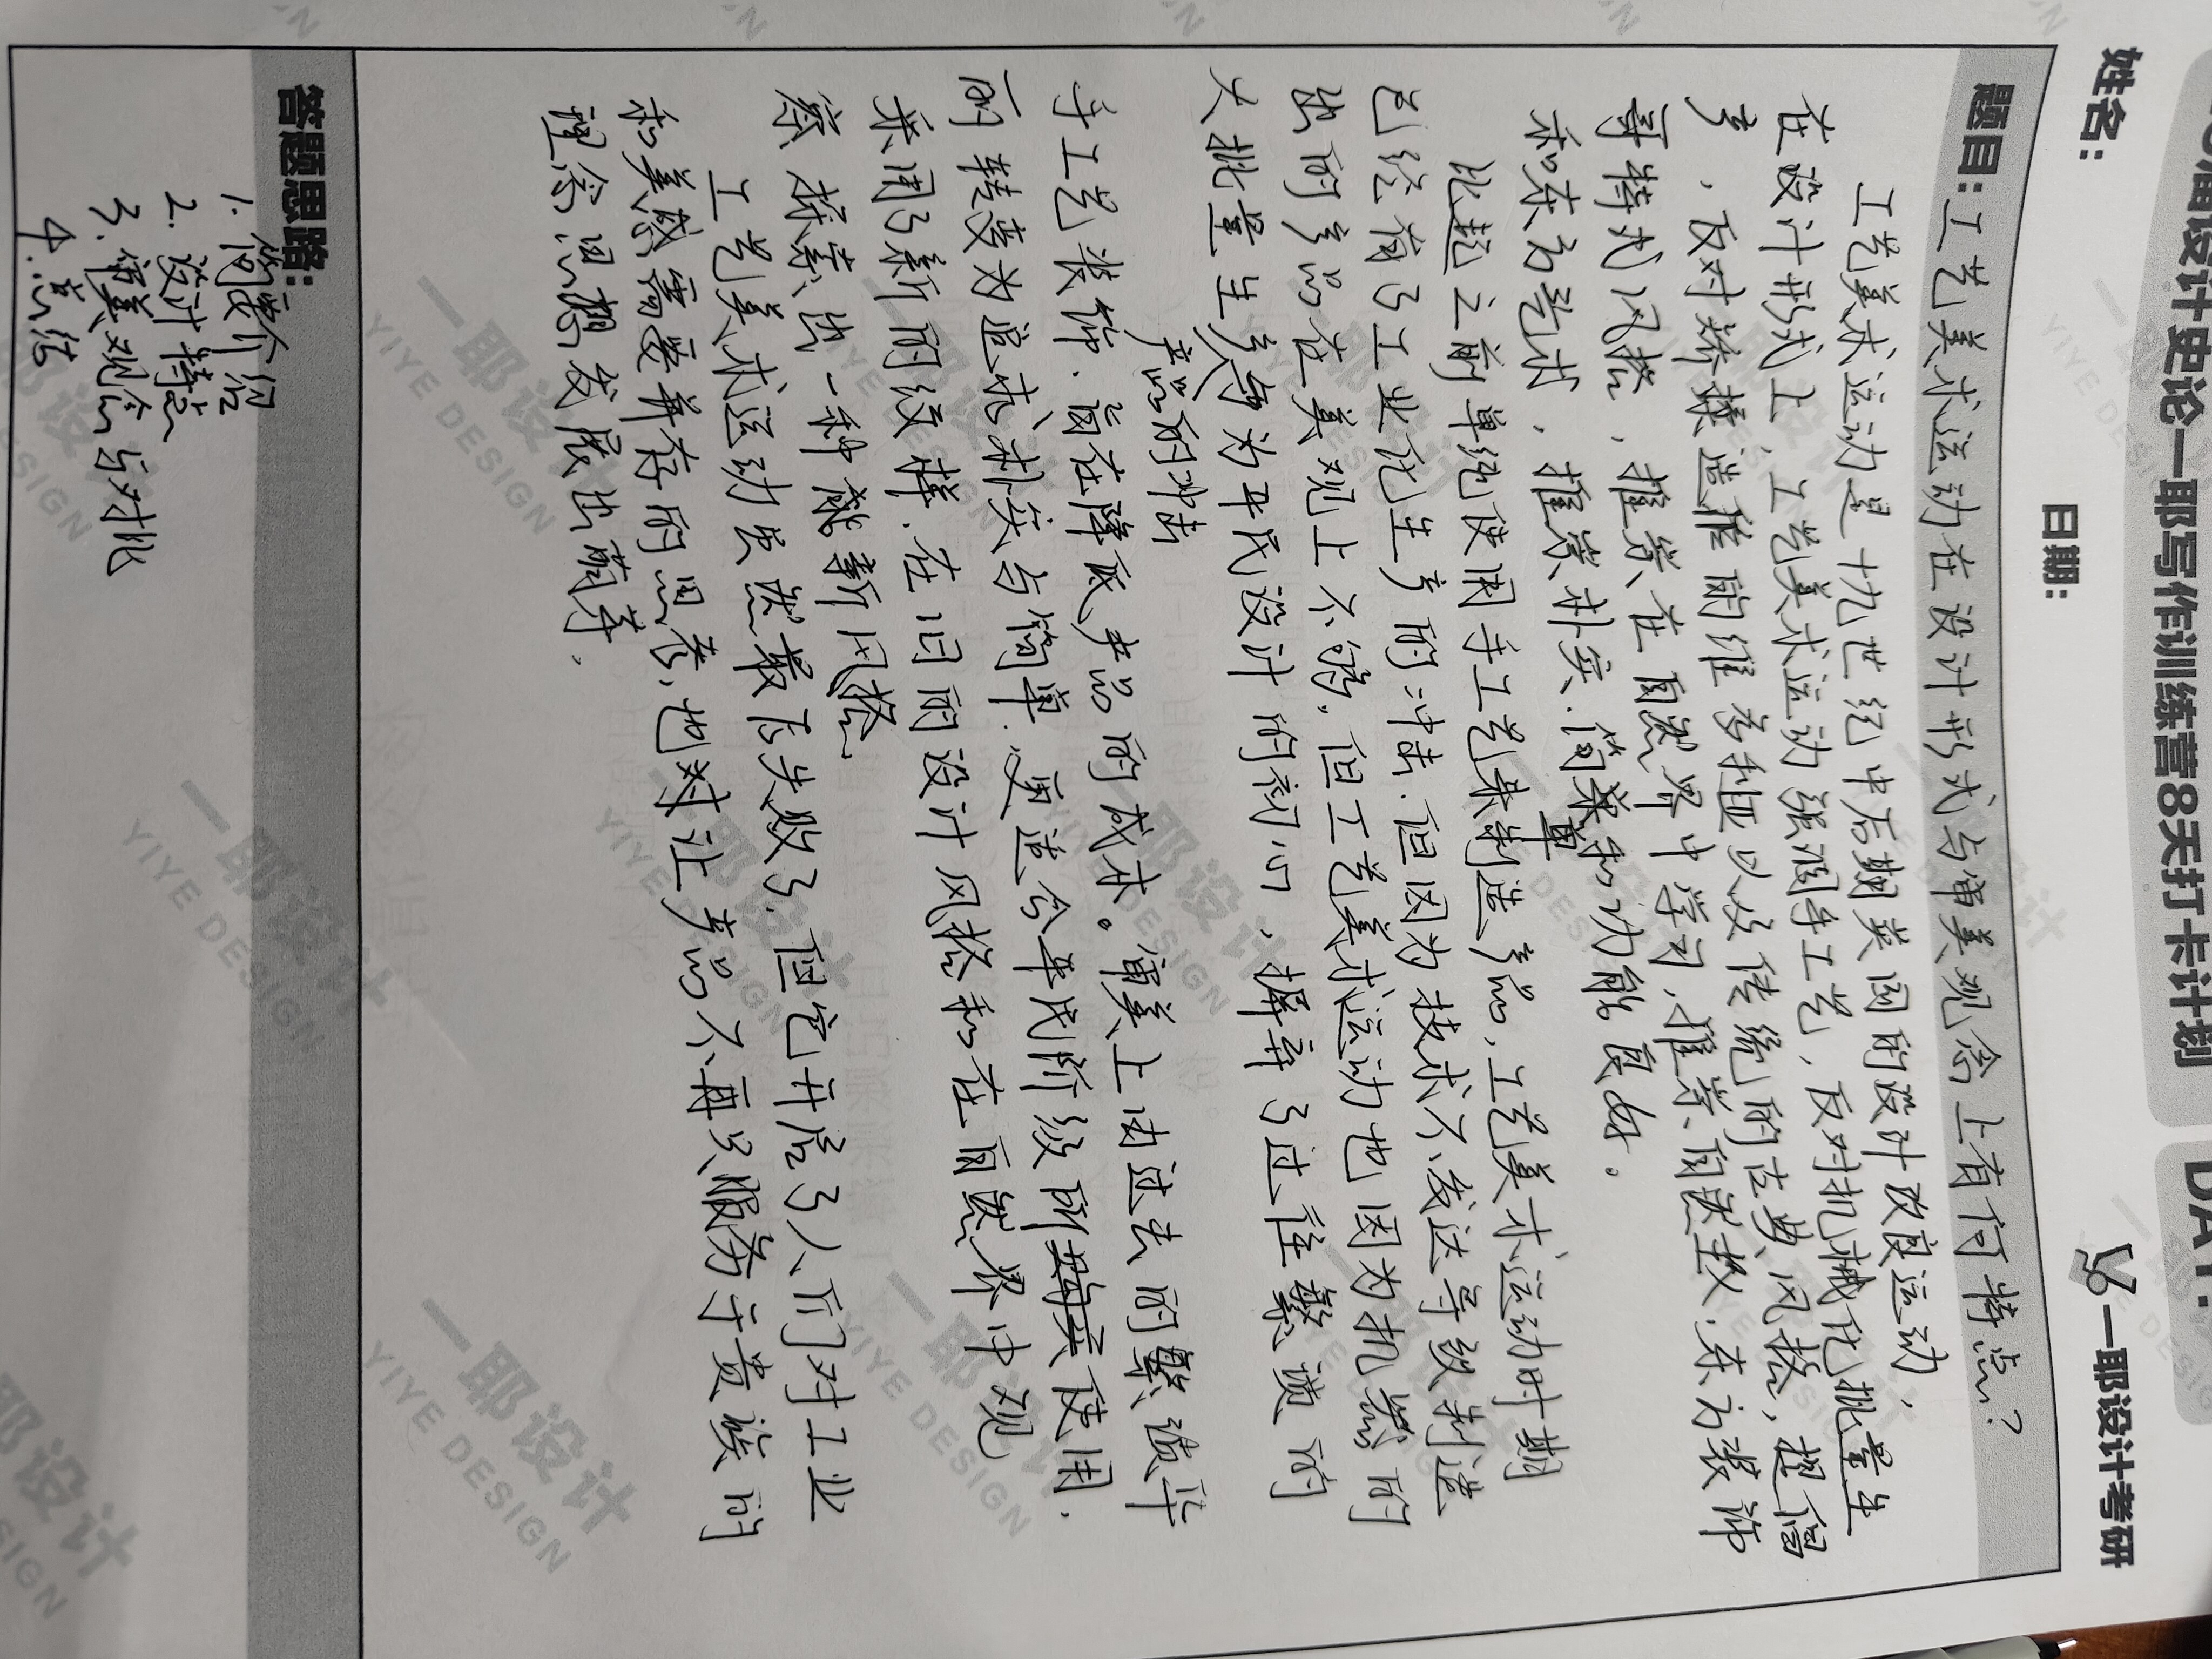 届设计史论一耶写作训练营8天打卡计划
DAY:
姓名:
日期:
一耶设计考研
题目:工艺美术运动在设计形式与审美观念上有何特点?
工艺美术运动是十九世纪中后期英国的设计改良运动,
在设计形式上,工艺美术运动强调手工艺,反对机械化批量生
产,反对矫揉造作的维多利亚以及传统的古典风格,提倡
哥特式风格,推崇在自然界中学习,推崇自然主义、东方装饰
和东方艺术,推崇朴实、简单和功能良好。
比起之前单纯使用手工艺来制造产品,工艺美术运动时期
已经有了工业化生产的冲击.但因为技术不发达导致制造
出的产品在美观上不够。但工艺美术运动也因为机器的
大批量生产与为平民设计的初心,摒弃了过往繁琐的
产品的冲击
手工艺装饰.旨在降低产品的成本。审美上由过去的繁琐华
丽转变为追求朴实与简单.更适合平民阶级所使用.
采用了新的纹样.在旧的设计风格和在自然界中观
察探索出一种新风格.
工艺美术运动虽然最后失败了.但它开启了人们对工业
和美感需要并存的思考,也对让产品不再只服务于贵族的
理念思想发展出萌芽.
答题思路:
1.简要介绍
2.设计特点
3.审美观念与对比
4.总结
一耶设计
YIYE DESIGN